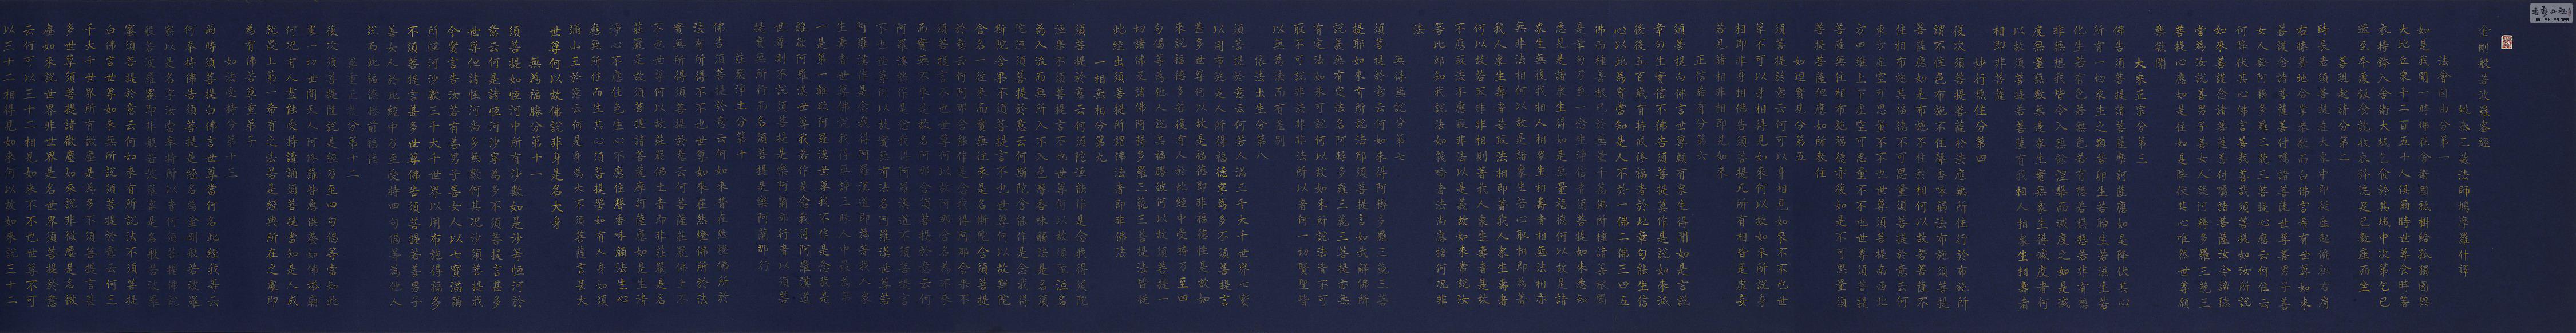 金剛般若波羅蜜經
姚秦三藏法師鳩摩羅什譯
法會因由分第一
如是我聞一時佛在舍衛國祇樹給孤獨園與
大比丘眾千二百五十人俱爾時世尊食時著
衣持鉢入舍衛大城乞食於其城中次第乞已
還至本處飯食訖收衣鉢洗足已敷座而坐
善現起請分第二
時長老須菩提在大眾中即從座起偏袒右肩
右膝著地合掌恭敬而白佛言希有世尊如來
善護念諸菩薩善付囑諸菩薩世尊善男子善
女人發阿耨多羅三藐三菩提心應云何住云
何降伏其心佛言善哉善哉須菩提如汝所說
如來善護念諸菩薩善付囑諸菩薩汝今諦聽
當為汝說善男子善女人發阿耨多羅三藐三
菩提心應如是住如是降伏其心唯然世尊願
樂欲聞
大乘正宗分第三
佛告須菩提諸菩薩摩訶薩應如是降伏其心
所有一切眾生之類若卵生若胎生若濕生若
化生若有色若無色若有想若無想若非有想
非無想我皆令入無餘涅槃而滅度之如是滅
度無量無數無邊眾生實無眾生得滅度者何
以故須菩提若菩薩有我相人相眾生相壽者
相即非菩薩
妙行無住分第四
復次須菩提菩薩於法應無所住行於布施所
謂不住色布施不住聲香味觸法布施須菩提
菩薩應如是布施不住於相何以故若菩薩不
住相布施其福德不可思量須菩提於意云何
東方虛空可思量不不也世尊須菩提南西北
方四維上下虛空可思量不不也世尊須菩提
菩薩無住相布施福德亦復如是不可思量須
菩提菩薩但應如所教住
如理實見分第五
須菩提於意云何可以身相見如來不不也世
尊不可以身相得見如來何以故如來所說身
相即非身相佛告須菩提凡所有相皆是虛妄
若見諸相非相即見如來
正信希有分第六
須菩提白佛言世尊頗有眾生得聞如是言說
章句生實信不佛告須菩提莫作是說如來滅
後後五百歲有持戒修福者於此章句能生信
心以此為實當知是人不於一佛二佛三四五
佛而種善根已於無量千萬佛所種諸善根聞
是章句乃至一念生淨信者須菩提如來悉知
悉見是諸眾生得如是無量福德何以故是諸
眾生無復我相人相眾生相壽者相無法相亦
無非法相何以故是諸眾生若心取相即為著
我人眾生壽者若取法相即著我人眾生壽者
何以故若取非法相即著我人眾生壽者是故
不應取法不應取非法以是義故如來常說汝
等比丘知我說法如筏喻者法尚應捨何況非
法
無得無說分第七
須菩提於意云何如來得阿耨多羅三藐三菩
提耶如來有所說法耶須菩提言如我解佛所
說義無有定法名阿耨多羅三藐三菩提亦無
有定法如來可說何以故如來所說法皆不可
取不可說非法非非法所以者何一切賢聖皆
以無為法而有差別
依法出生分第八
須菩提於意云何若人滿三千大千世界七寶
以用布施是人所得福德寧為多不須菩提言
甚多世尊何以故是福德即非福德性是故如
來說福德多若復有人於此經中受持乃至四
句偈等為他人說其福勝彼何以故須菩提一
切諸佛及諸佛阿耨多羅三藐三菩提法皆從
此經出須菩提所謂佛法者即非佛法
一相無相分第九
須菩提於意云何須陀洹能作是念我得須陀
洹果不須菩提言不也世尊何以故須陀洹名
為入流而無所入不入色聲香味觸法是名須
陀洹須菩提於意云何斯陀含能作是念我得
斯陀含果不須菩提言不也世尊何以故斯陀
含名一往來而實無往來是名斯陀含須菩提
於意云何阿那含能作是念我得阿那含果不
須菩提言不也世尊何以故阿那含名為不來
而實無不來是故名阿那含須菩提於意云何
阿羅漢能作是念我得阿羅漢道不須菩提言
不也世尊何以故實無有法名阿羅漢世尊若
阿羅漢作是念我得阿羅漢道即為著我人眾
生壽者世尊佛說我得無諍三昧人中最為第
一是第一離欲阿羅漢世尊我不作是念我是
離欲阿羅漢世尊我若作是念我得阿羅漢道
世尊則不說須菩提是樂阿蘭那行者以須菩
提實無所行而名須菩提是樂阿蘭那行
莊嚴淨土分第十
佛告須菩提於意云何如來昔在然燈佛所於
法有所得不不也世尊如來在然燈佛所於法
實無所得須菩提於意云何菩薩莊嚴佛土不
不也世尊何以故莊嚴佛土者即非莊嚴是名
莊嚴是故須菩提諸菩薩摩訶薩應如是生清
淨心不應住色生心不應住聲香味觸法生心
應無所住而生其心須菩提譬如有人身如須
彌山王於意云何是身為大不須菩提言甚大
世尊何以故佛說非身是名大身
無為福勝分第十一
須菩提如恒河中所有沙數如是沙等恒河於
意云何是諸恒河沙寧為多不須菩提言甚多
世尊但諸恒河尚多無數何況其沙須菩提我
今實言告汝若有善男子善女人以七寶滿爾
所恒河沙數三千大千世界以用布施得福多
不須菩提言甚多世尊佛告須菩提若善男子
善女人於此經中乃至受持四句偈等為他人
說而此福德勝前福德
尊重正教分第十二
復次須菩提隨說是經乃至四句偈等當知此
處一切世間天人阿修羅皆應供養如佛塔廟
何況有人盡能受持讀誦須菩提當知是人成
就最上第一希有之法若是經典所在之處即
為有佛若尊重弟子
如法受持分第十三
爾時須菩提白佛言世尊當何名此經我等云
何奉持佛告須菩提是經名為金剛般若波羅
蜜以是名字汝當奉持所以者何須菩提佛說
般若波羅蜜即非般若波羅蜜是名般若波羅
蜜須菩提於意云何如來有所說法不須菩提
白佛言世尊如來無所說須菩提於意云何三
千大千世界所有微塵是為多不須菩提言甚
多世尊須菩提諸微塵如來說非微塵是名微
塵如來說世界非世界是名世界須菩提於意
云何可以三十二相見如來不不也世尊不可
以三十二相得見如來何以故如來說三十二